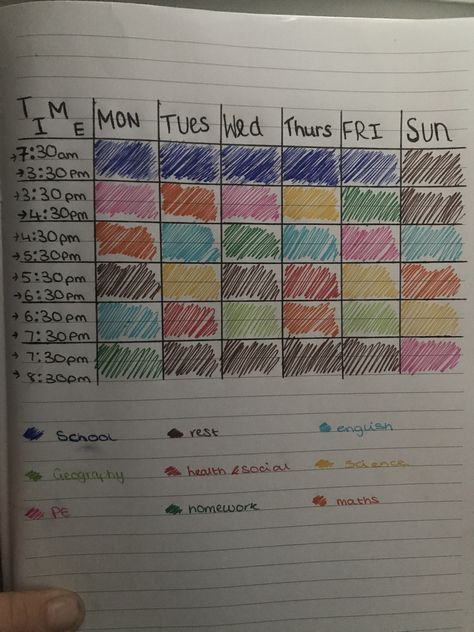 TIME MON TUES Wed Thurs FRI SUN
→7:30am
→3:30pm
→3:30pm
→4:30pm
→4:30pm
→5:30pm
→5:30pm
→6:30pm
→6:30pm
→7:30pm
→7:30pm
→8:30pm
School rest english
Geography health & social science
PE homework maths